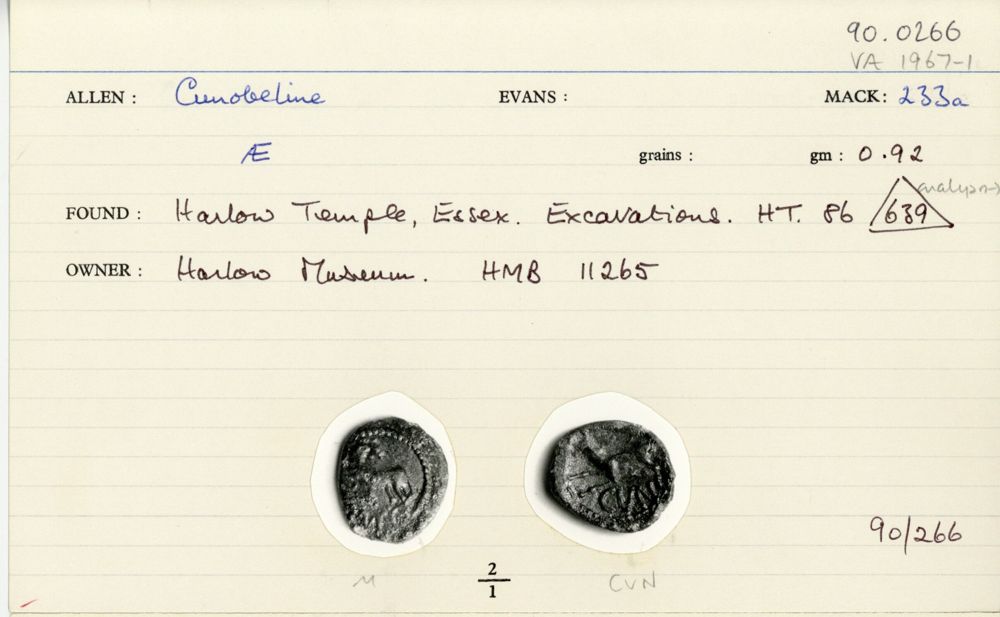 90.0266
VA 1967-1
ALLEN : Cunobeline EVANS : MACK: 233a
Æ grains : gm : 0.92
analysis
FOUND : Harlow Temple, Essex. Excavations. HT. 86 639
OWNER : Harlow Museum. HMB 11265
90/266
M 2/1 CVN